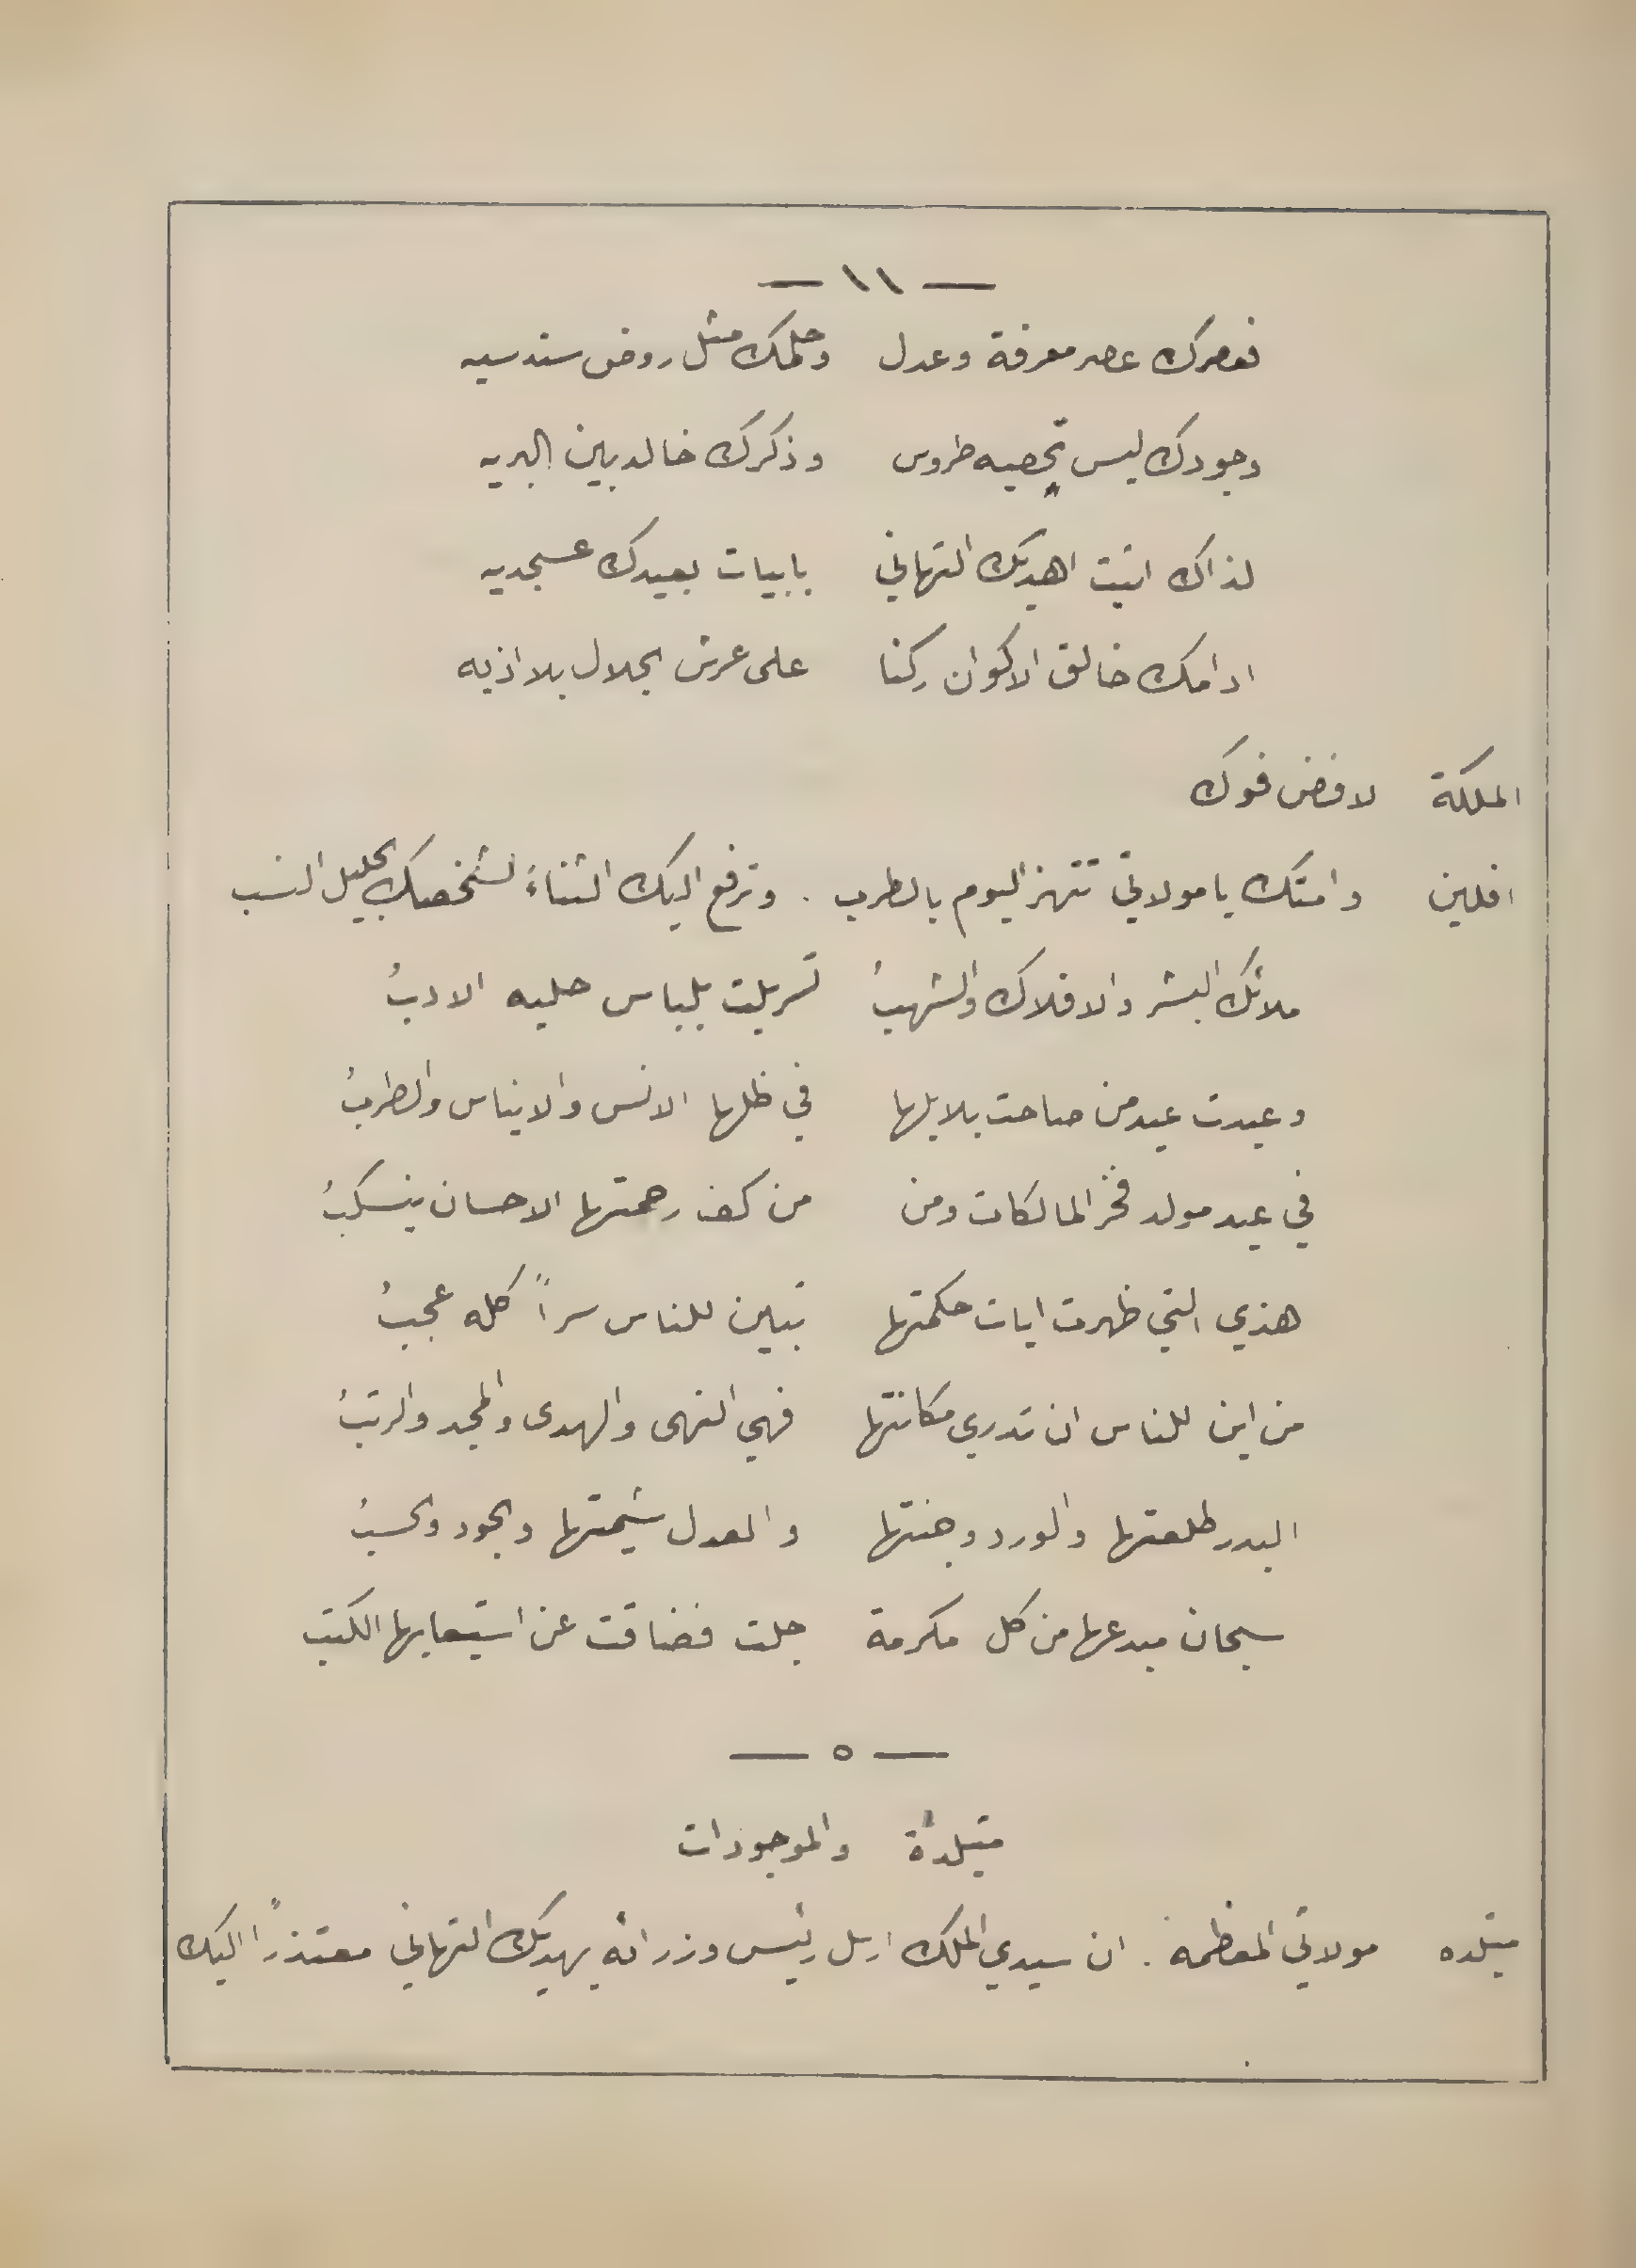 — ١١ —
فعصرك عصر معرفة وعدل وحلمك مثل روض سندسيه
وجودك ليس تحصيه طروس وذكرك خالد بين البريه
لذاك اتيت اهديك التهاني بابيات بعيدك عسجديه
ادامك خالق الاكوان ركنا على عرش الجلال بلا اذيه
الملكة لا فض فوك
افلين وامتك يا مولاتي تتهز اليوم بالطرب . وترفع اليك الثناءَ لشخصك الجليل النسب
ملائك البشر والافلاك والشهبُ تسربلت بلباس حليه الادبُ
وعيدت عيد من صاحت بلابلها في ظلها الانس والايناس والطربُ
في عيد مولد فخر المالكات ومن من كف رحمتها الاحسان ينسكبُ
هذي التي ظهرت ايات حكمتها تبين للناس سراً كله عجبُ
من اين للناس ان تدري مكانتها فهي النهى والهدى والمجد والرتبُ
البدر طلعتها والورد وجنتها والعدل شيمتها والجود والحسبُ
سبحان مبدعها من كل مكرمة جلت فضاقت عن استيعابها الكتب
— ٥ —
متيلدة والموجودات
متيلده مولاتي المعظمة . ان سيدي الملك ارسل رئيس وزرائه يهديك التهاني معتذراً اليك